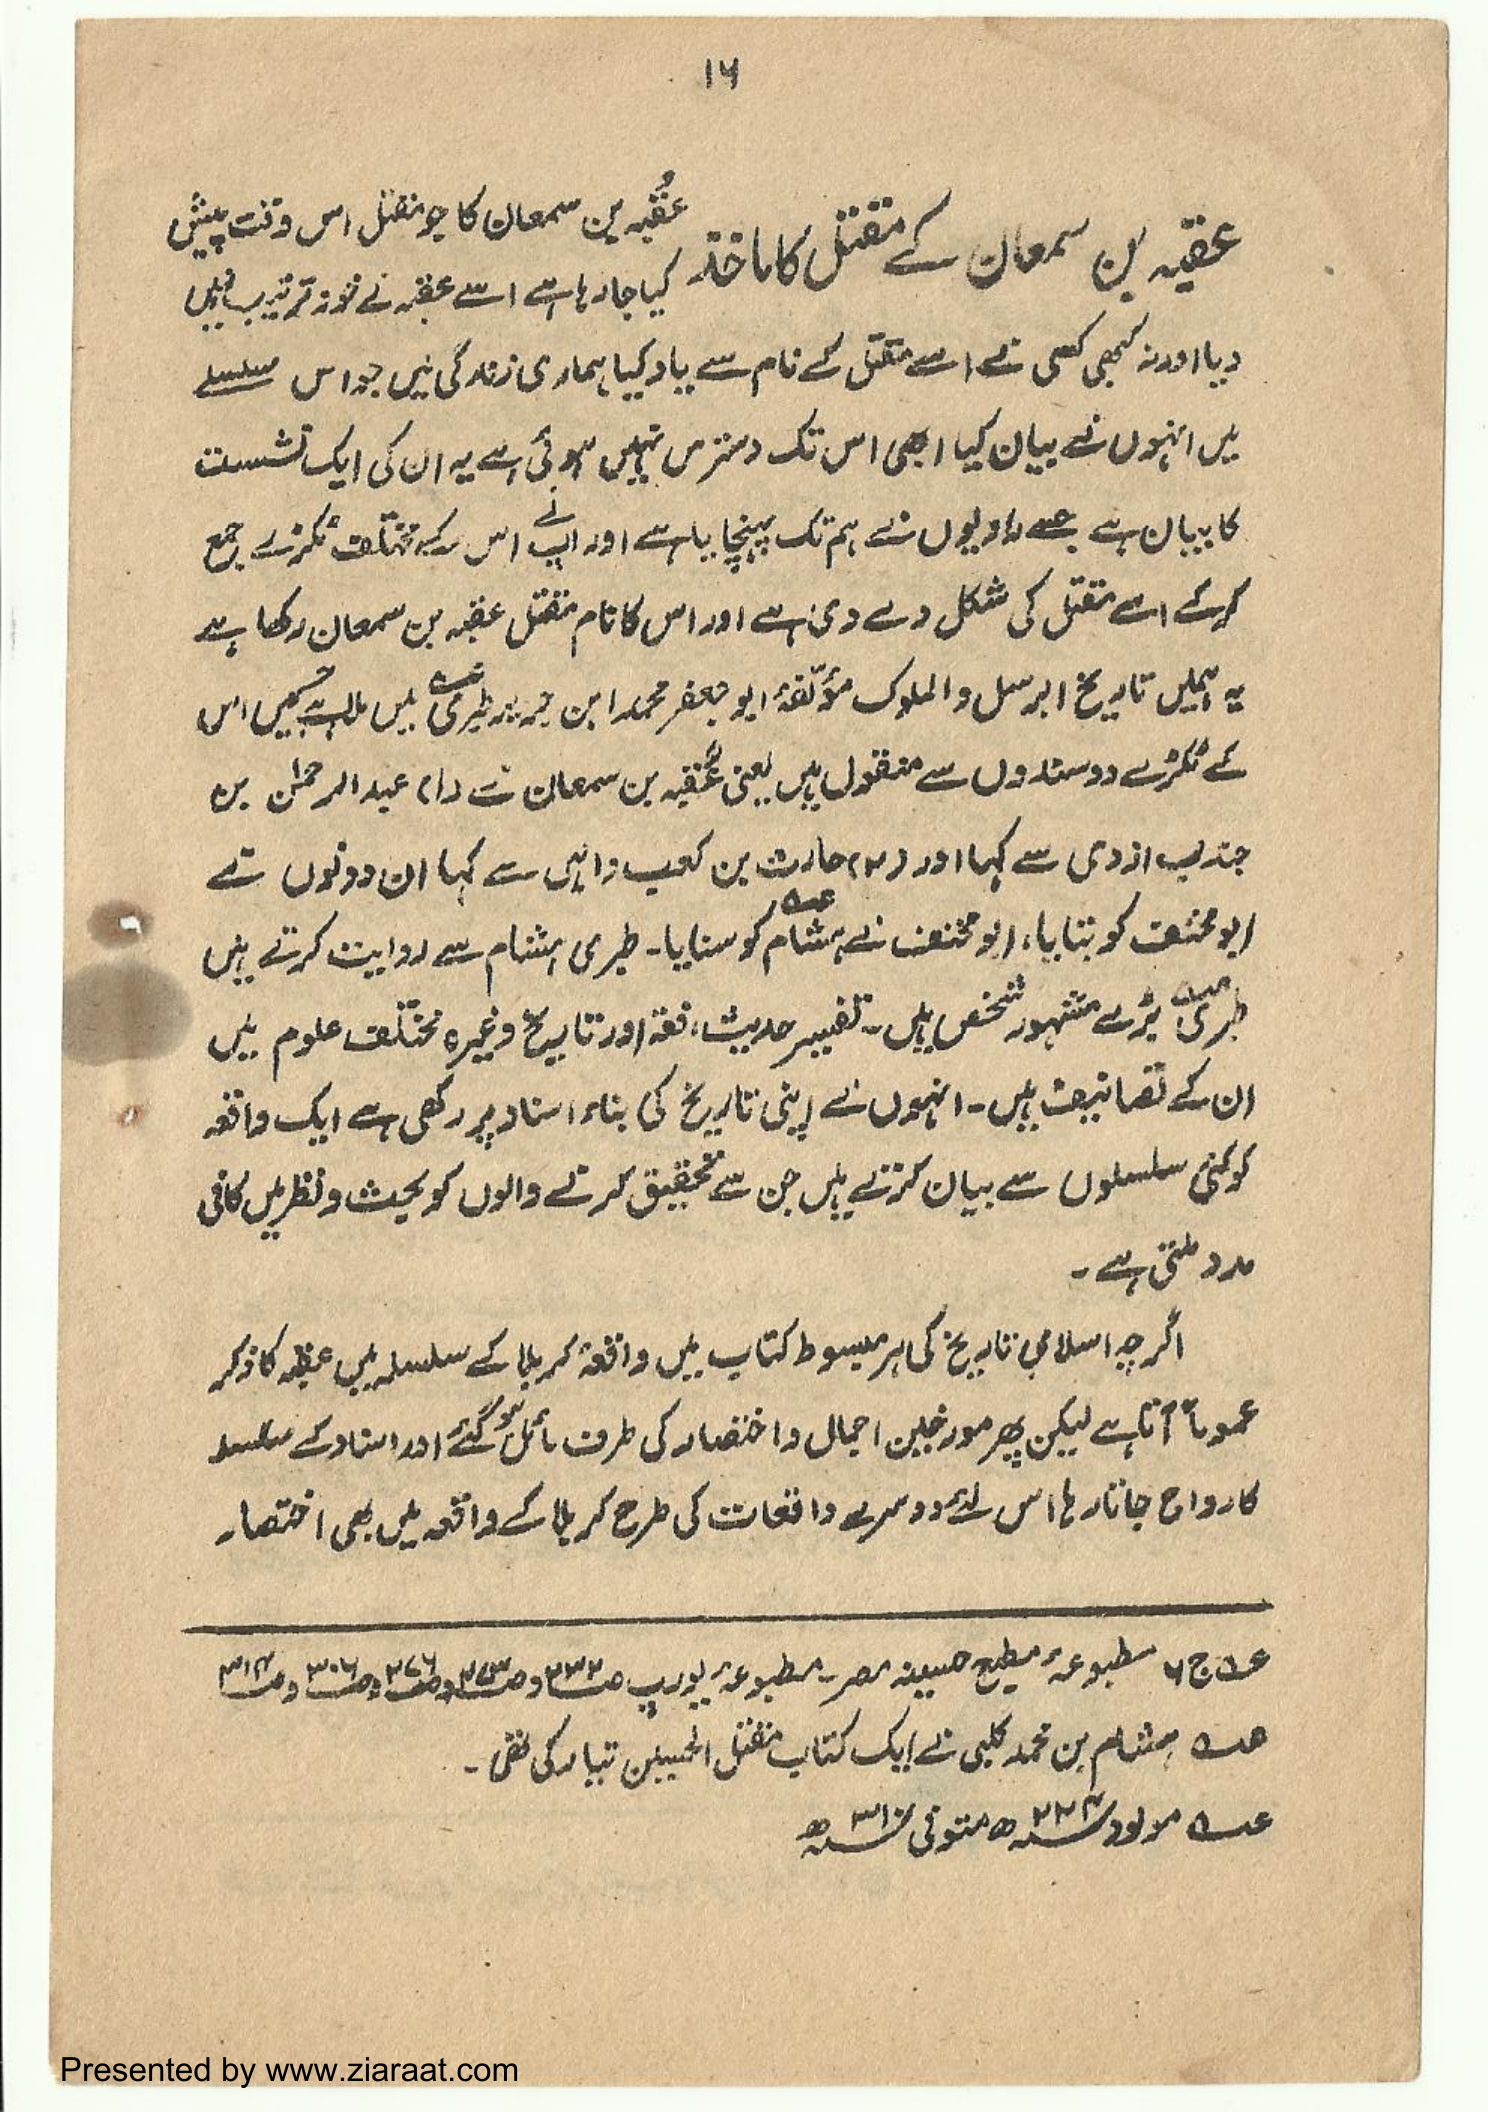 ۱۶
عقبہ بن سمعان کے مقتل کا ماخذ
عُقبہ بن سمعان کا جو مقتل اس وقت پیش
کیا جا رہا ہے اسے عقبہ نے خود ترتیب نہیں
دیا اور نہ کبھی کسی نے اسے مقتل کے نام سے یاد کیا ہماری زندگی میں جو اس سلسلے
میں انہوں نے بیان کیا ابھی اس تک دسترس نہیں ہوئی ہے یہ ان کی ایک نشست
کا بیان ہے جسے راویوں نے ہم تک پہنچایا ہے اور اب نے اس کے مختلف ٹکڑے جمع
کر کے اسے مقتل کی شکل دے دی ہے اور اس کا نام مقتل عقبہ بن سمعان رکھا ہے
یہ ہمیں تاریخ الرسل والملوک مؤلّفۂ ابو جعفر محمد ابن جریر طبری میں ملا ہے اس
کے ٹکڑے دو سندوں سے منقول ہیں یعنی عُقبہ بن سمعان نے (۱) عبد الرحمٰن بن
جندب ازدی سے کہا اور (۲) حارث بن کعب والبی سے کہا ان دونوں نے
ابو مخنف کو بتایا، ابو مخنف نے ہشام کو سنایا۔ طبری ہشام سے روایت کرتے ہیں
طبری بڑے مشہور شخص ہیں۔ تفسیر حدیث، فقہ اور تاریخ وغیرہ مختلف علوم میں
ان کے تصانیف ہیں۔ انہوں نے اپنی تاریخ کی بناء اسناد پر رکھی ہے ایک واقعہ
کو کئی سلسلوں سے بیان کرتے ہیں جن سے تحقیق کرنے والوں کو بحث و نظر میں کافی
مدد ملتی ہے۔
اگرچہ اسلامی تاریخ کی ہر مبسوط کتاب میں واقعۂ کربلا کے سلسلہ میں عقبہ کا ذکر
عموماً آتا ہے لیکن پھر مورخین اجمال و اختصار کی طرف مائل ہو گئے اور اسناد کے سلسلہ
کا رواج جاتا رہا اس لئے دوسرے واقعات کی طرح کربلا کے واقعہ میں بھی اختصار
ج ۶ مطبوعۂ مطبع حسینیہ مصر۔ مطبوعۂ یورپ ص۲۳۲ و ص۲۷۳ و ص۲۷۶ و ص۳۰۶ و ص۳۱۴
ہشام بن محمد کلبی نے ایک کتاب مقتل الحسین تیار کی تھی۔
مولود ۲۲۴ھ متوفی ۳۱۰ھ
Presented by www.ziaraat.com